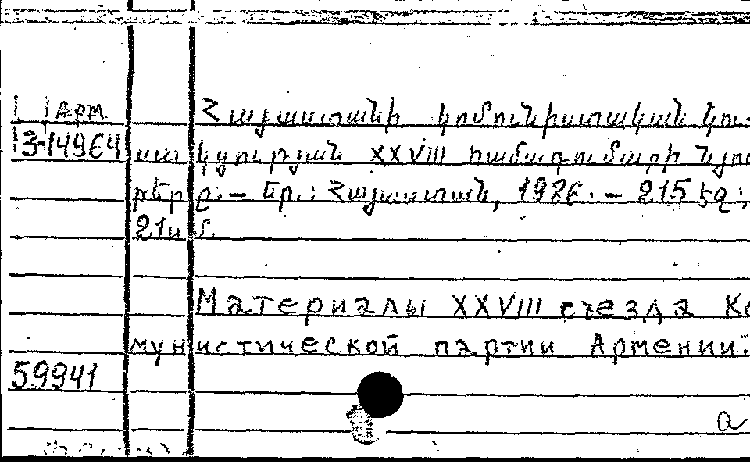 Арм. Հայաստանի կոմունիստական կու-
3-14964 սակցության XXVIII համագումարի նյու-
թերը.— Եր.: Հայաստան, 1986.— 215 էջ;
21սմ.
Материалы XXVIII съезда Ко
мунистической партии Армении.
59941
а